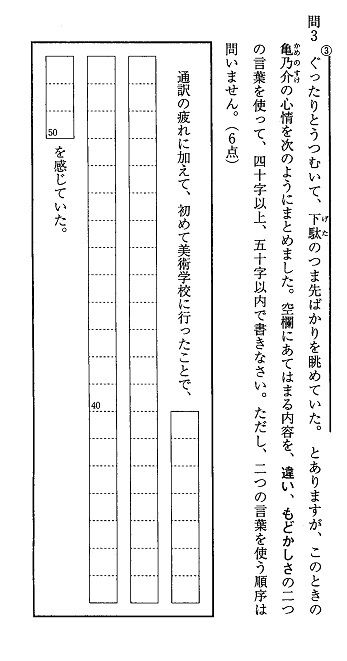 問3 ③ぐったりとうつむいて、下駄のつま先ばかりを眺めていた。 とありますが、このときの
亀乃介の心情を次のようにまとめました。空欄にあてはまる内容を、違い、もどかしさの二つ
の言葉を使って、四十字以上、五十字以内で書きなさい。ただし、二つの言葉を使う順序は
問いません。(6点)
通訳の疲れに加えて、初めて美術学校に行ったことで、
40
50
を感じていた。